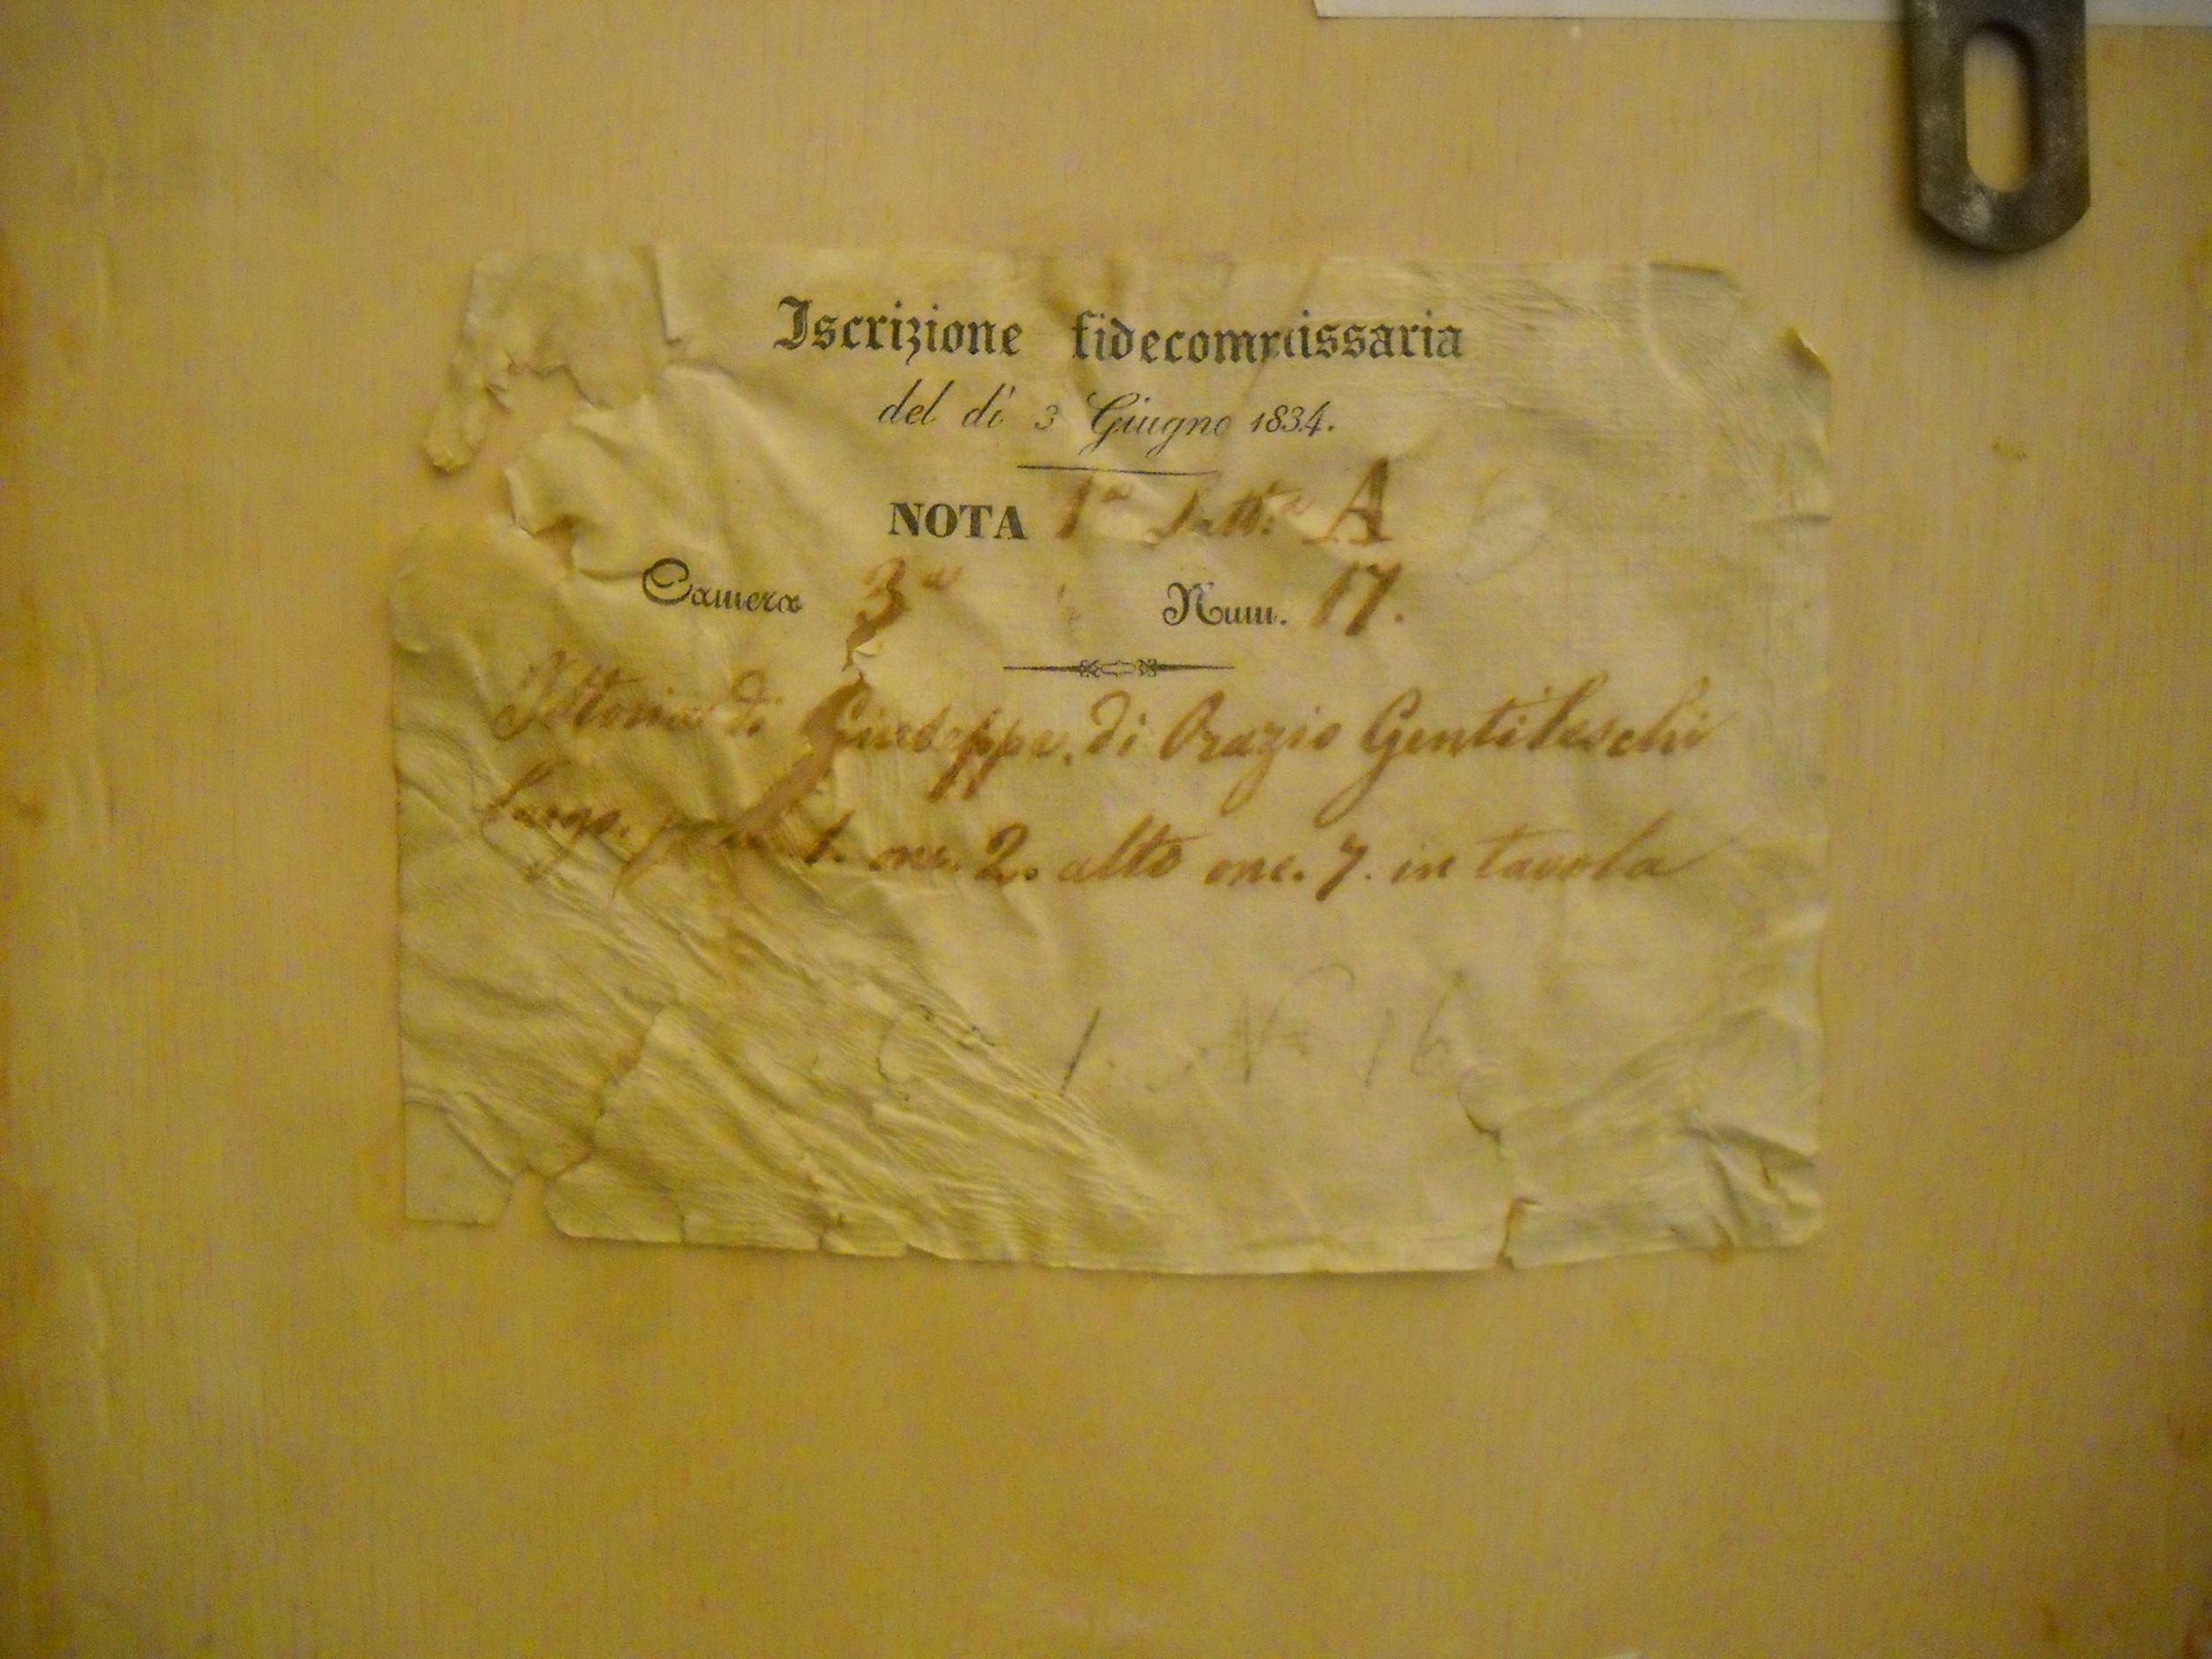 Iscrizione fidecommissaria
del dì 3 Giugno 1834.
NOTA 1ª Lettª A
Camera 3ª Num. 17.
Istoria di Giuseppe, di Orazio Gentileschi
largo. 1. onc. 2. alto onc. 7. in tavola
1. N 16